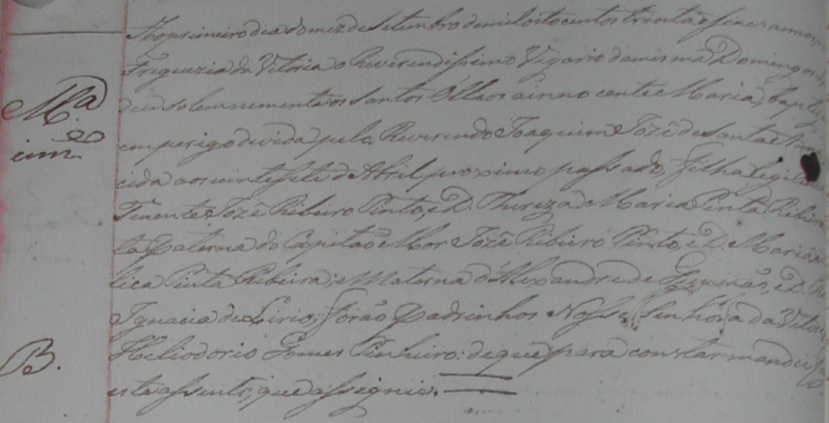 Ao primeiro dia do mez de Setembro de mil oito centos trinta e annos,
Freguezia da Vitoria o Reverendissimo Vigario da mesma Domingos
deu solemnemente os Santos Olios a innocente Maria, bap
Mª
em perigo de vida pelo Reverendo Joaquim Jozé de Santa
cida aos vinte sete de Abril proximo passado, filha legi
Tenente Jozé Ribeiro Pinto, e D. Thereza Maria Pinta Ribeir
ta Paterna do Capitão Mor Jozé Ribeiro Pinto, e D. Maria
lica Pinta Ribeira; e Materna d'Alexandre de Gusmão, e D.
Ignacia de Lirio; forão Padrinhos Nossa Senhora da Vitori
B.
Heliodorio Gomes Pinheiro: de que para constar mandei
este assento, que assignei.